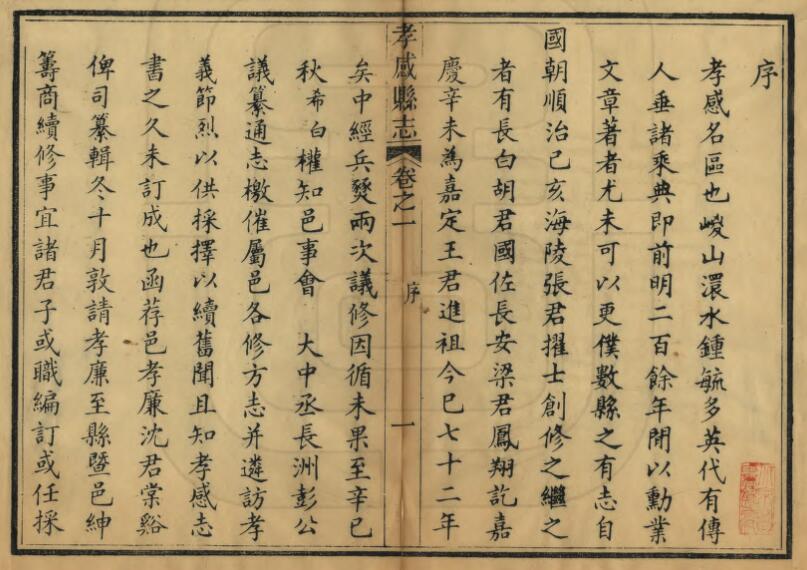 序
孝感名區也峻山澴水鍾毓多英代有傳
人垂諸乘典即前明二百餘年間以勳業
文章著者尤未可以更僕數縣之有志自
國朝順治己亥海陵張君擢士創修之繼之
者有長白胡君國佐長安梁君鳳翔訖嘉
慶辛未為嘉定王君進祖今已七十二年
孝感縣志 卷之一 序 一
矣中經兵燹兩次議修因循未果至辛巳
秋希白權知邑事會 大中丞長洲彭公
議纂通志檄催屬邑各修方志并遴訪孝
義節烈以供採擇以續舊聞且知孝感志
書之久未訂成也函荐邑孝廉沈君棠谿
俾司纂輯冬十月敦請孝廉至縣暨邑紳
籌商續修事宜諸君子或職編訂或任採